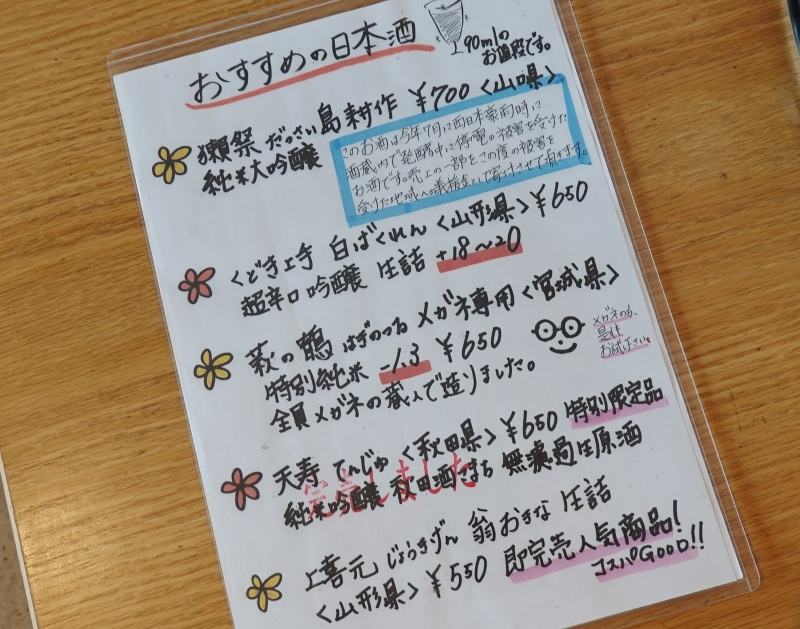 おすすめの日本酒
90mlの
お値段です。
獺祭 だっさい 島耕作 ¥700 <山口県>
純米大吟醸
このお酒は今年7月に西日本豪雨時に
酒蔵内で発酵中に停電の被害を受けた
お酒です。売上の一部をこの度の被害を
受けた地域への義援金として寄付させて頂きます。
くどき上手 白ばくれん <山形県> ¥650
超辛口 吟醸 生詰 +18〜20
萩の鶴 はぎのつる メガネ専用 <宮城県>
特別純米 -1.3 ¥650
全員メガネの蔵人で造りました。
メガネの方、
是非
お試し下さい。
天寿 てんじゅ <秋田県> ¥650 特別限定品
純米吟醸 秋田酒こまち 無濾過生原酒
完売しました
上喜元 じょうきげん 翁 おきな 生詰
<山形県> ¥550 即完売人気商品!
コスパGOOD!!